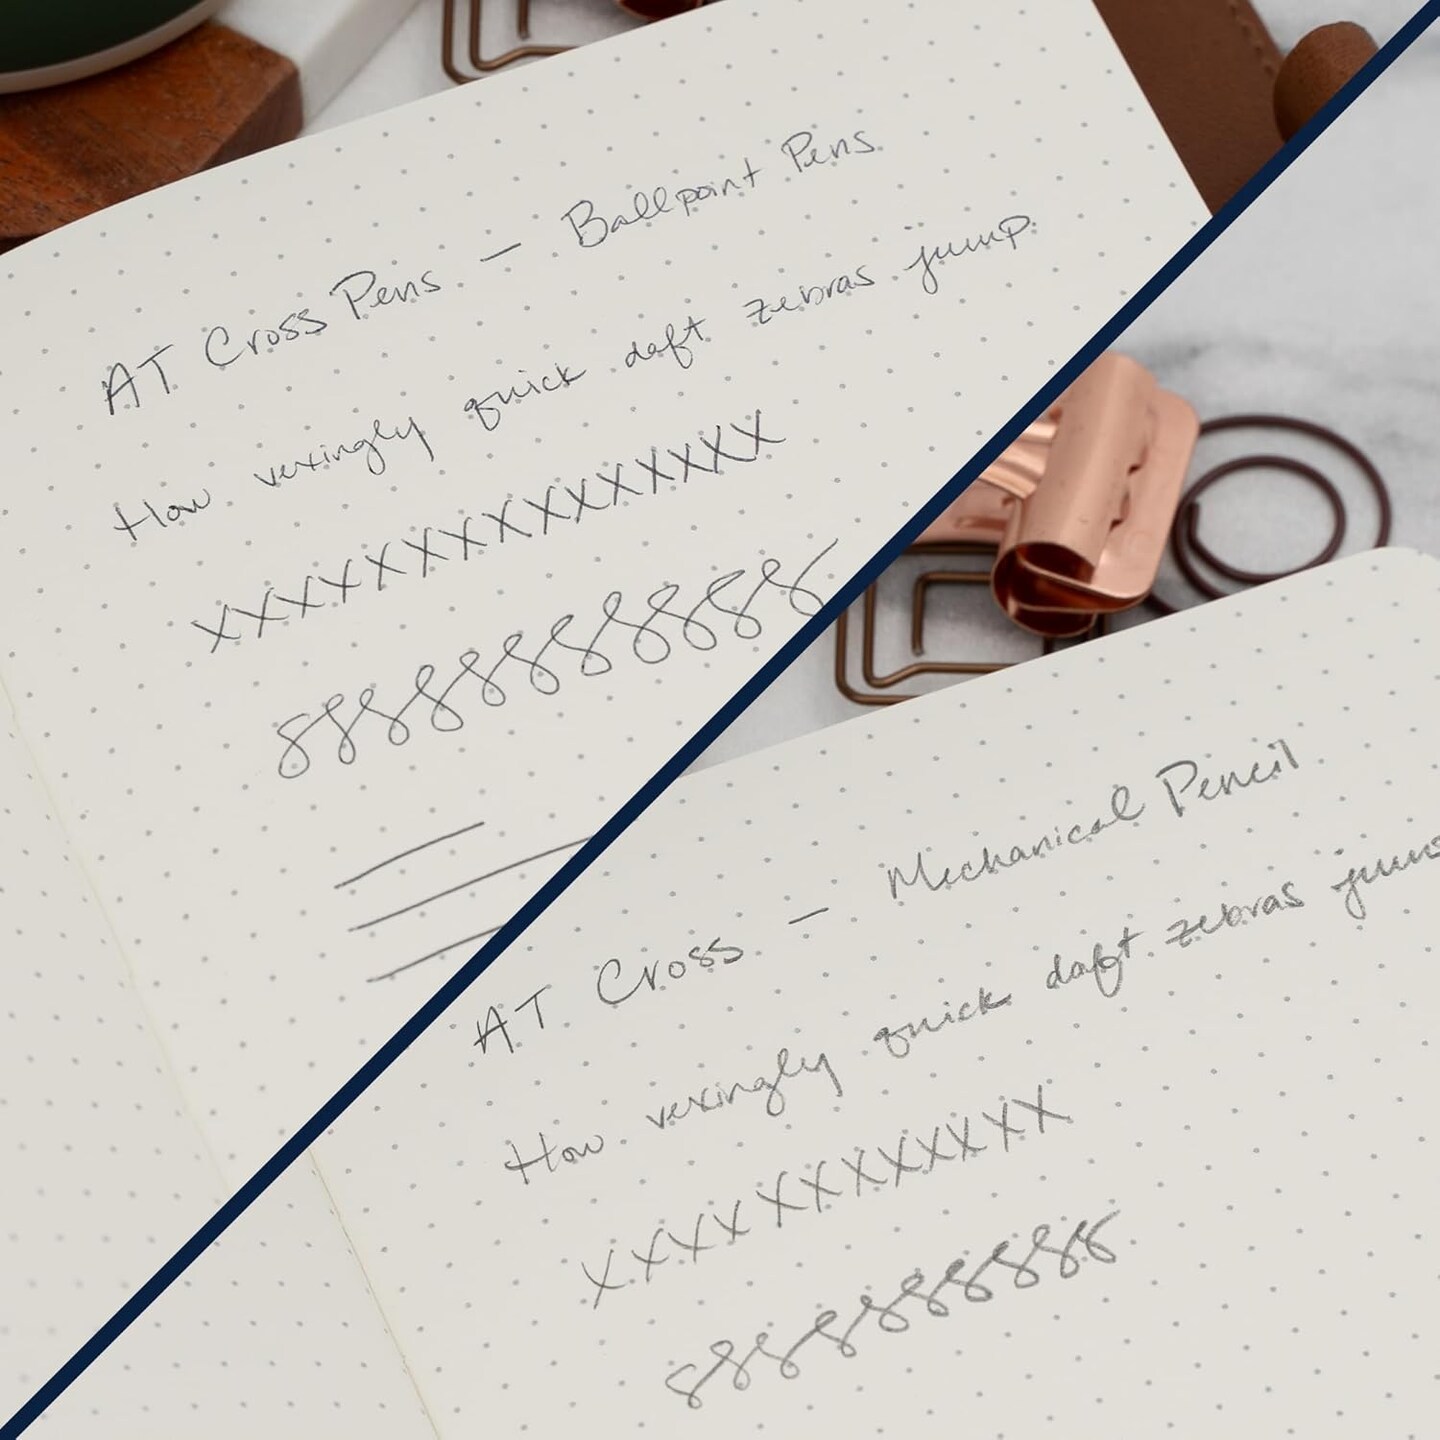 AT Cross Pens — Ballpoint Pens
How vexingly quick daft zebras jump
XXXXXXXXXXXXXX
AT Cross — Mechanical Pencil
How vexingly quick daft zebras
XXXXXXXXXXXX